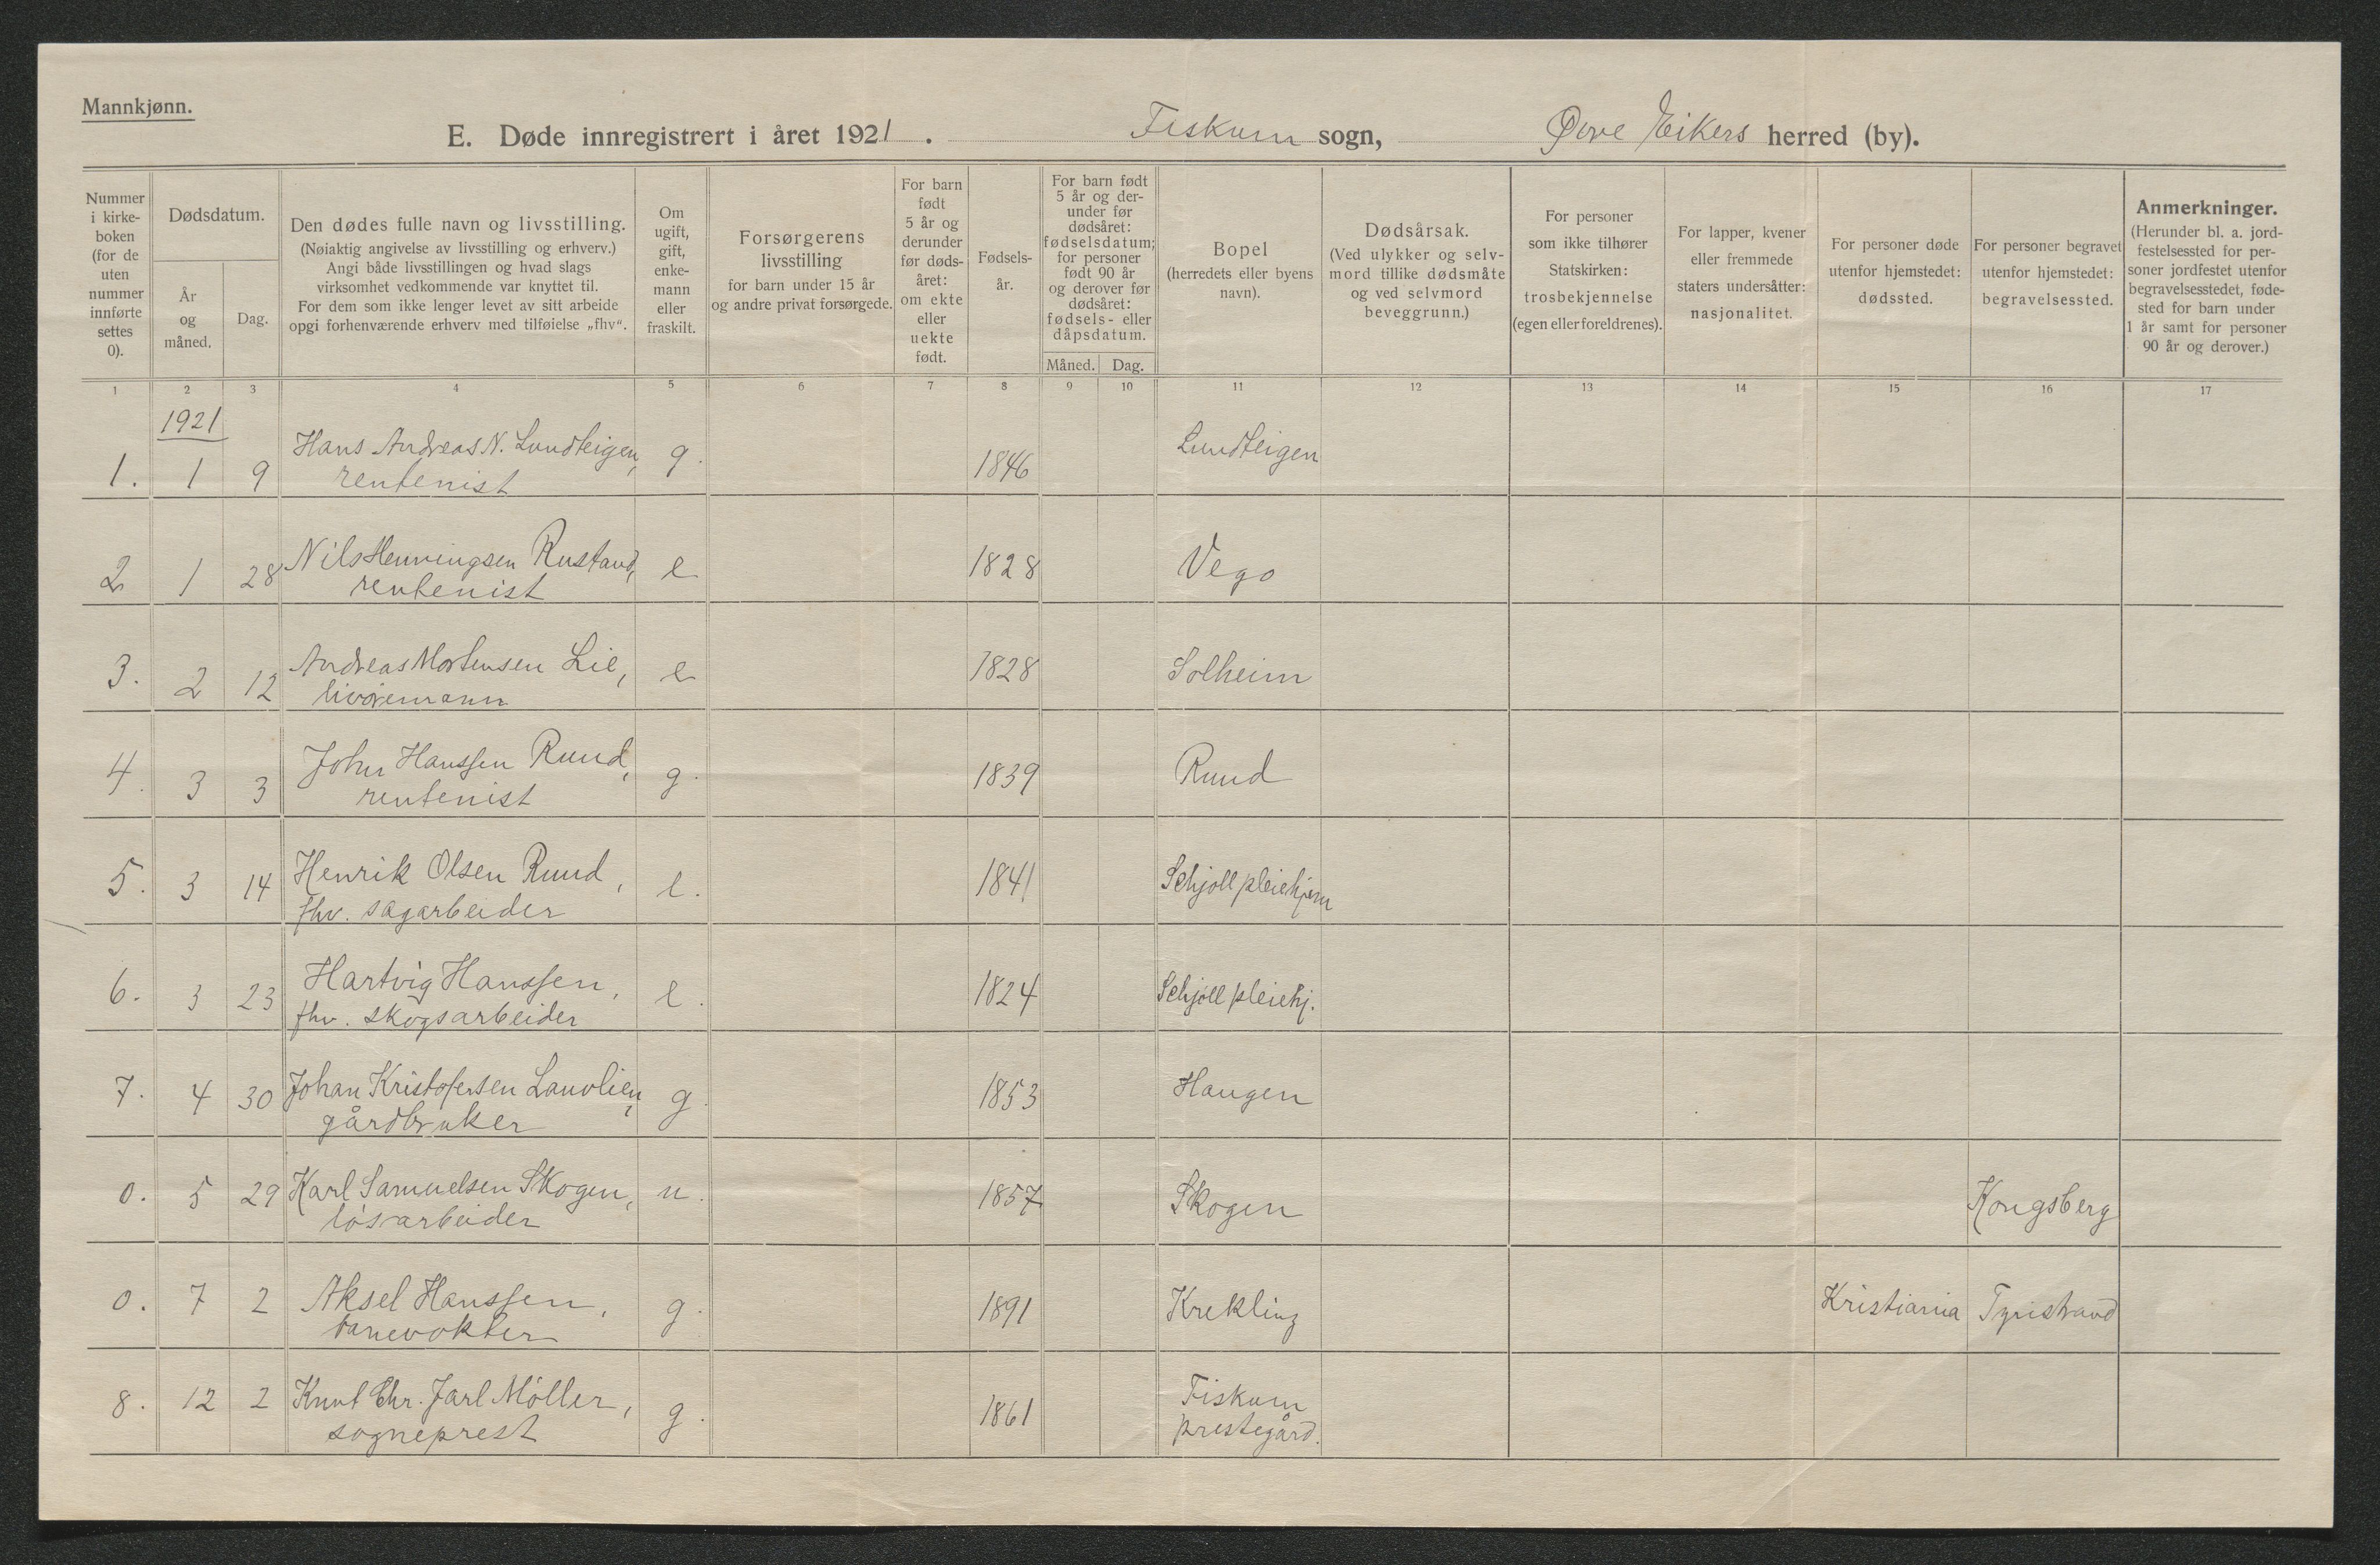 Mannkjønn.
E. Døde innregistrert i året 1921. Fiskum sogn, Øvre Eikers herred (by).
Nummer i kirke-boken (for de uten nummer innførte settes 0).
Dødsdatum.
År og måned.
Dag.
Den dødes fulle navn og livsstilling.
(Nøiaktig angivelse av livsstilling og erhverv.)
Angi både livsstillingen og hvad slags
virksomhet vedkommende var knyttet til.
For dem som ikke lenger levet av sitt arbeide
opgi forhenværende erhverv med tilføielse „fhv“.
Om ugift, gift, enke-mann eller fraskilt.
Forsørgerens livsstilling
for barn under 15 år
og andre privat forsørgede.
For barn født 5 år og derunder før døds-året: om ekte eller uekte født.
Fødsels-år.
For barn født 5 år og der-under før dødsåret: fødselsdatum; for personer født 90 år og derover før dødsåret: fødsels- eller dåpsdatum.
Måned. Dag.
Bopel
(herredets eller byens navn).
Dødsårsak.
(Ved ulykker og selv-mord tillike dødsmåte og ved selvmord beveggrunn.)
For personer som ikke tilhører Statskirken: trosbekjennelse (egen eller foreldrenes).
For lapper, kvener eller fremmede staters undersåtter: nasjonalitet.
For personer døde utenfor hjemstedet: dødssted.
For personer begravet utenfor hjemstedet: begravelsessted.
Anmerkninger.
(Herunder bl. a. jord-festelsessted for per-soner jordfestet utenfor begravelsesstedet, føde-sted for barn under 1 år samt for personer 90 år og derover.)
1 2 3 4 5 6 7 8 9 10 11 12 13 14 15 16 17
1921
1. 1 9 Hans Andreas N. Lundteigen, g. 1846 Lundteigen
rentenist
2 1 28 Nils Henningsen Rustand, e 1828 Vego
rentenist
3. 2 12 Andreas Mortensen Lie, e 1828 Solheim
livøremann
4. 3 3 John Hanssen Ruud, g. 1839 Ruud
rentenist
5. 3 14 Henrik Olsen Ruud, e. 1841 Schjøll pleiehjem
fhv. sagarbeider
6. 3 23 Hartvig Hanssen, e. 1824 Schjøll pleiehj.
fhv. skogsarbeider
7. 4 30 Johan Kristofersen Lauvlien, g. 1853 Haugen
gårdbruker
0. 5 29 Karl Samuelsen Skogen, u. 1857 Skogen Kongsberg
løsarbeider
0. 7 2 Aksel Hanssen, g. 1891 Krekling Kristiania Tyristrand
banevokter
8. 12 2 Knut Chr. Jarl Møller, g. 1861 Fiskum
sogneprest prestegård.